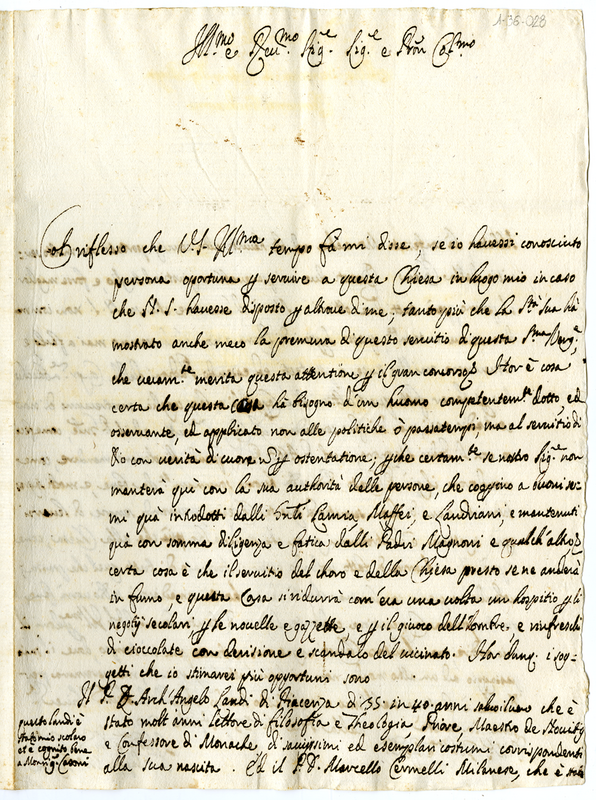 1-36-028
Ill.mo e Rev.mo Sig.e Sig.e e Pron Col.mo
Col riflesso che V.S. Ill.ma tempo fà mi disse, se io havessi conosciuto
persona oportuna p servire a questa Chiesa in luogo mio in caso
che N. S. havesse disposto p altrove di me, tanto più che la S.tà Sua hà
mostrato anche meco la premura di questo servitio di questa S.ma Verg.e
che veram.te merita questa attentione p il gran concorso. Hor è cosa
certa che questa Casa hà bisogno d'un huomo competentem.te dotto, ed
osservante, ed applicato non alle politiche ò passatempi, ma al servitio di
Dio con verità di cuore e non p ostentatione; p che certam.te se nostro Sig.e non
manterà quì con la sua authorità delle persone, che coppino a buoni se-
mi quà introdotti dalli Lamia Maffei, e Landriani, e mantenuti
quà con somma diligenza e fatica dalli Padri Magnoni e qualch'altro
certa cosa è che il servitio del choro e della Chiesa presto se ne anderà
in fumo, e questa Casa si ridurrà com'era una volta un hospitio p li
negotij secolari, p le novelle e gazzette, e p il giuoco dell'hombre, e rinfreschi
di cioccolate con derisione e scandalo del vicinato. Hor dunq. i sog-
getti che io stimarei più opportuni sono
Il P. D. Arch'Angelo Landi di Piacenza di 35 in 40 anni che è
stato molt'anni lettore di filosofia e Theologia, Priore, Maestro de Novitij
e Confessore di Monache, di savijssimi ed esemplari costumi corrispondenti
alla sua nascita. Ed il P. D. Marcello Cermelli Milanese, che è stato
questo Landi è
stato mio scolaro
et è cognito bene
a Monsig.r Casoni